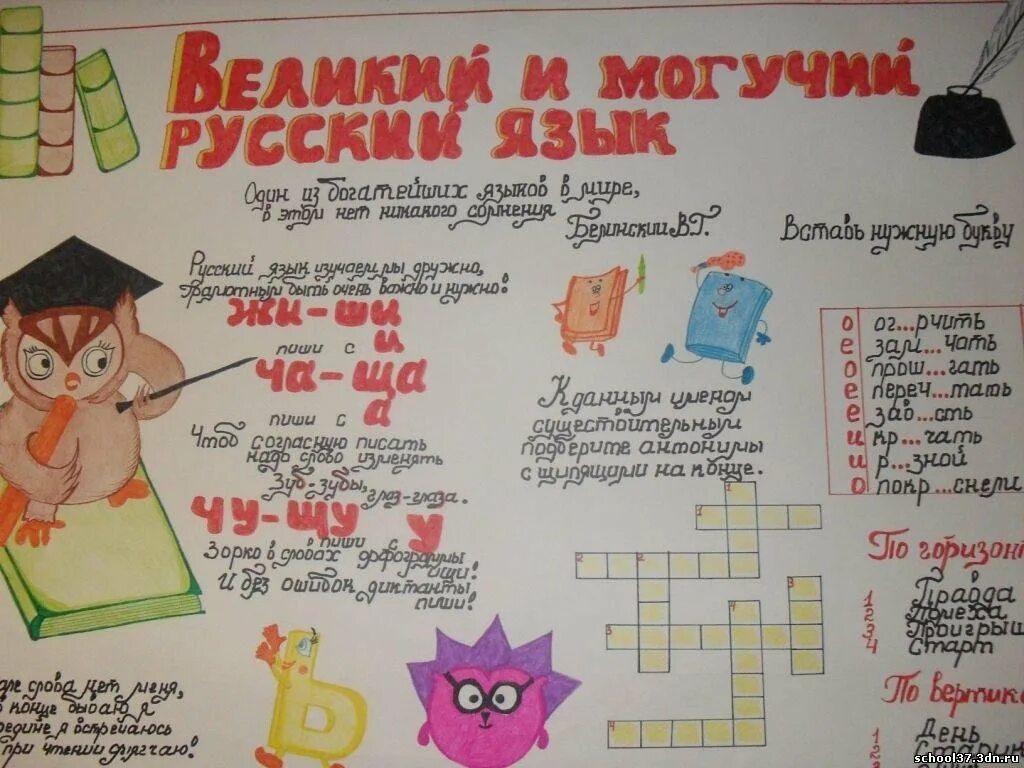 Великий и могучий
русский язык
Один из богатейших языков в мире,
в этом нет никакого сомнения
Белинский В.Г.
Русский язык изучаем мы дружно,
Грамотным быть очень важно и нужно!
жи-ши
пиши с и
ча-ща
пиши с а
Чтоб согласную писать
надо слово изменять
Зуб-зубы, глаз-глаза.
чу-щу
пиши с у
Зорко в словах орфограммы
ищи!
И без ошибок диктанты
пиши!
слова нет меня,
конце бываю я
я встречаюсь
при чтении смягчаю!
К данным именам
существительным
подберите антонимы
с шипящими на конце.
1
1
2 2
3
4
3
4
Вставь нужную букву
о ог...рчить
е зам...чать
о прош...гать
е переч...тать
е зав...сть
и кр...чать
и р...зной
о покр...снели
По горизонт
1 Правда
2 Помеха
3 Проигрыш
4 Старт
По вертик
1 День
2 Старик
school37.3dn.ru